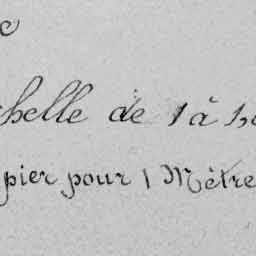 c
chelle de 1 à
pier pour 1 Mètre